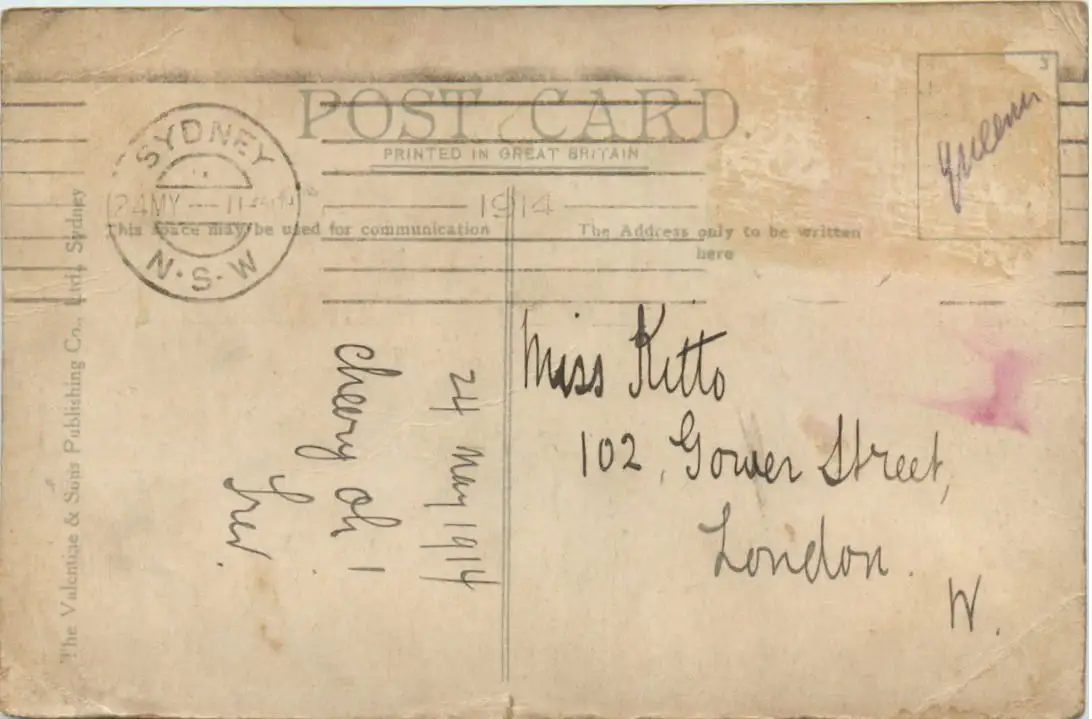 POST CARD.
PRINTED IN GREAT BRITAIN
SYDNEY
24MY 1914
N.S.W
This space may be used for communication
The Address only to be written
here
5
The Valentine & Sons Publishing Co., Ltd., Sydney
24 May 1914
Cheery oh!
Miss Kitto
102, Gower Street,
London.
W.